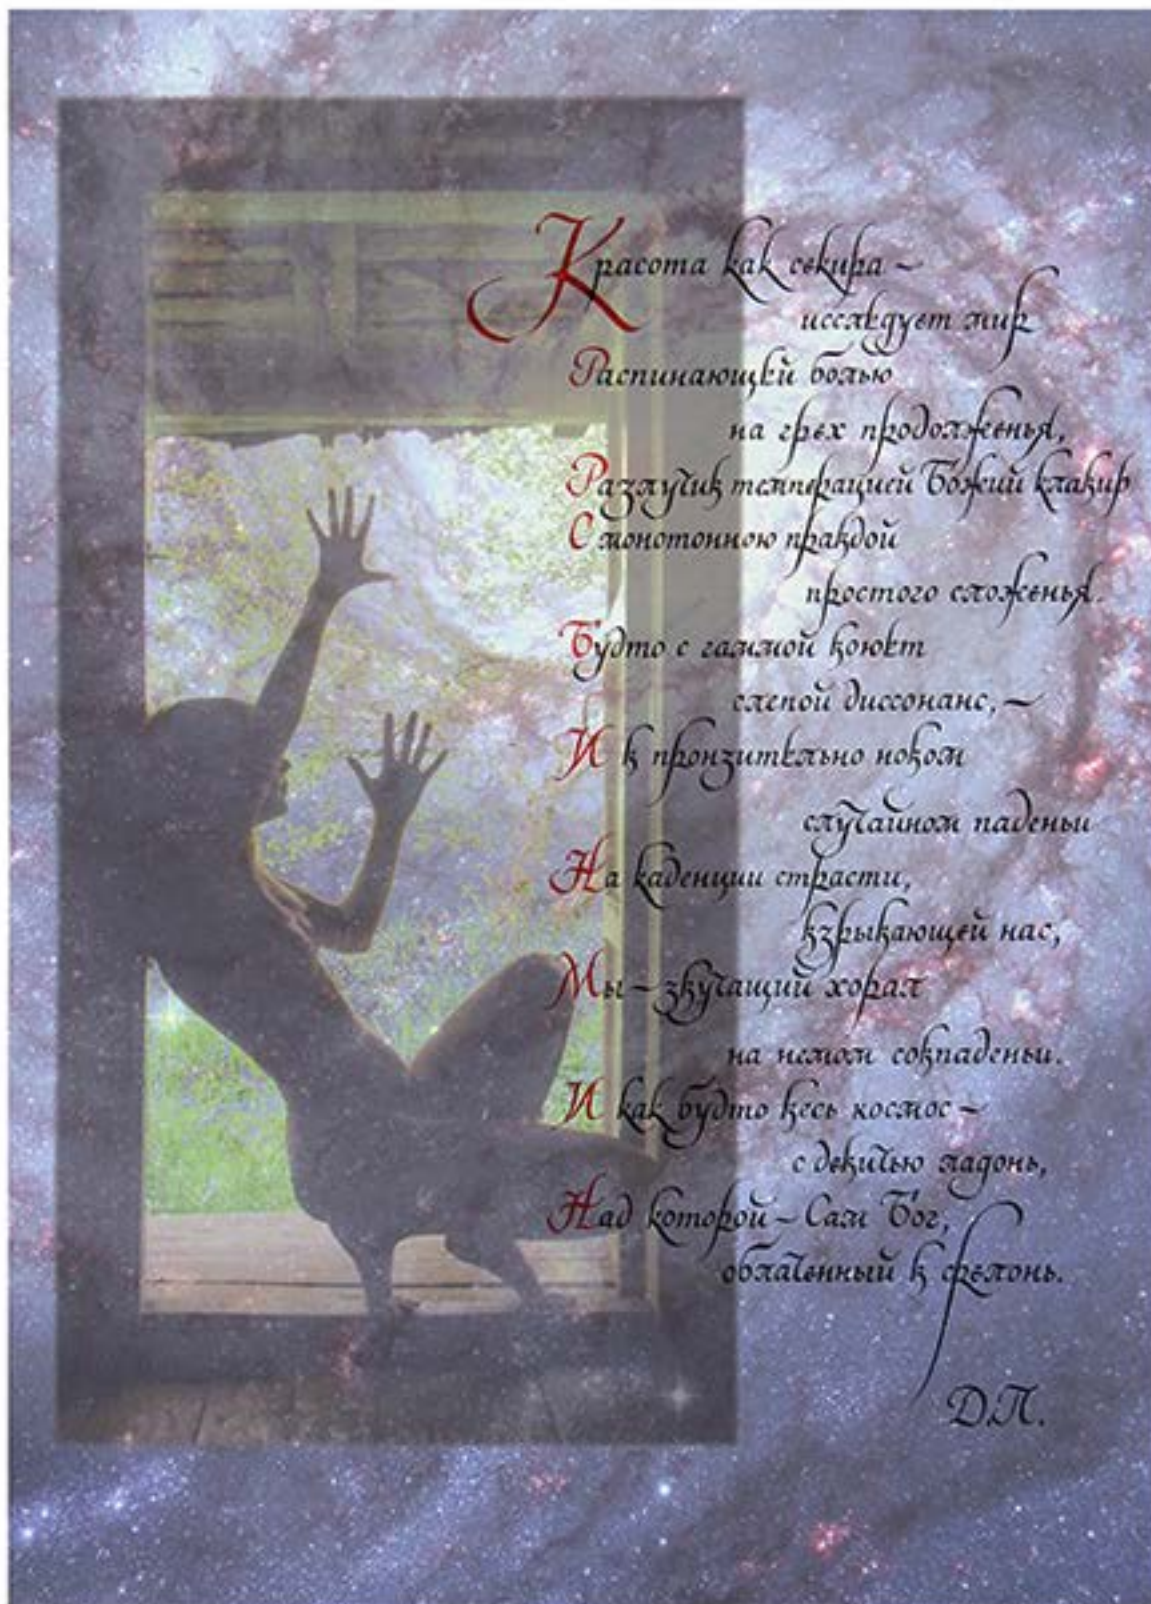 Красота как секира –
исследует мир
Распинающей болью
на грех продолженья,
Разлучив темперацией Божий клавир
С монотонною правдой
простого сложенья.
Будто с гаммой воюет
слепой диссонанс, –
И в пронзительно новом
случайном паденьи
На каденции страсти,
взрывающей нас,
Мы – звучащий хорал
на немом совпаденьи.
И как будто весь космос –
с девичью ладонь,
Над которой – Сам Бог,
облаченный в фелонь.
Д.П.